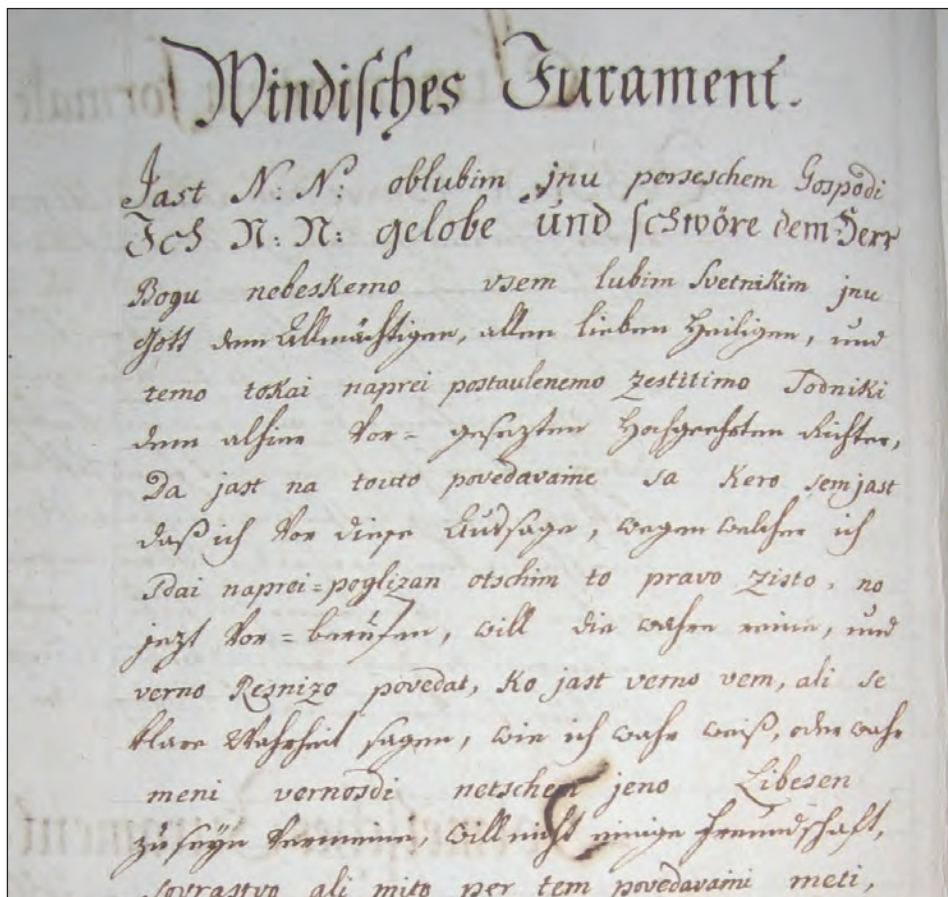 Windisches Jurament.
Jast N: N: oblubim jnu perseschem Gospodi
Ich N: N: gelobe und schwöre dem Herr
Bogu nebeskemo vsem lubim Svetnikim jnu
Gott dem Allmächtigen, allen lieben Heiligen, und
temo tokai naprei postaulenemo zestitimo Sodniki
dem alhier Vor= gesezten Hochgeehrten Richter,
Da jast na touto povedavaine sa kero sem jast
daß ich Vor diese Aussage, wegen welcher ich
Sdai naprei=poglizan otschim to pravo zisto, no
jezt Vor=beruffen, will die wahre reine, und
verno Resnizo povedat, ko jast verno vem, ali se
klare Wahrheit sagen, wie ich wahr weiß, oder wahr
meni vernosdi netschem jeno Libesen
zu seyn Vermeine, will nicht einige Freundschaft,
sovrastvo ali mito per tem povedavaini meti,